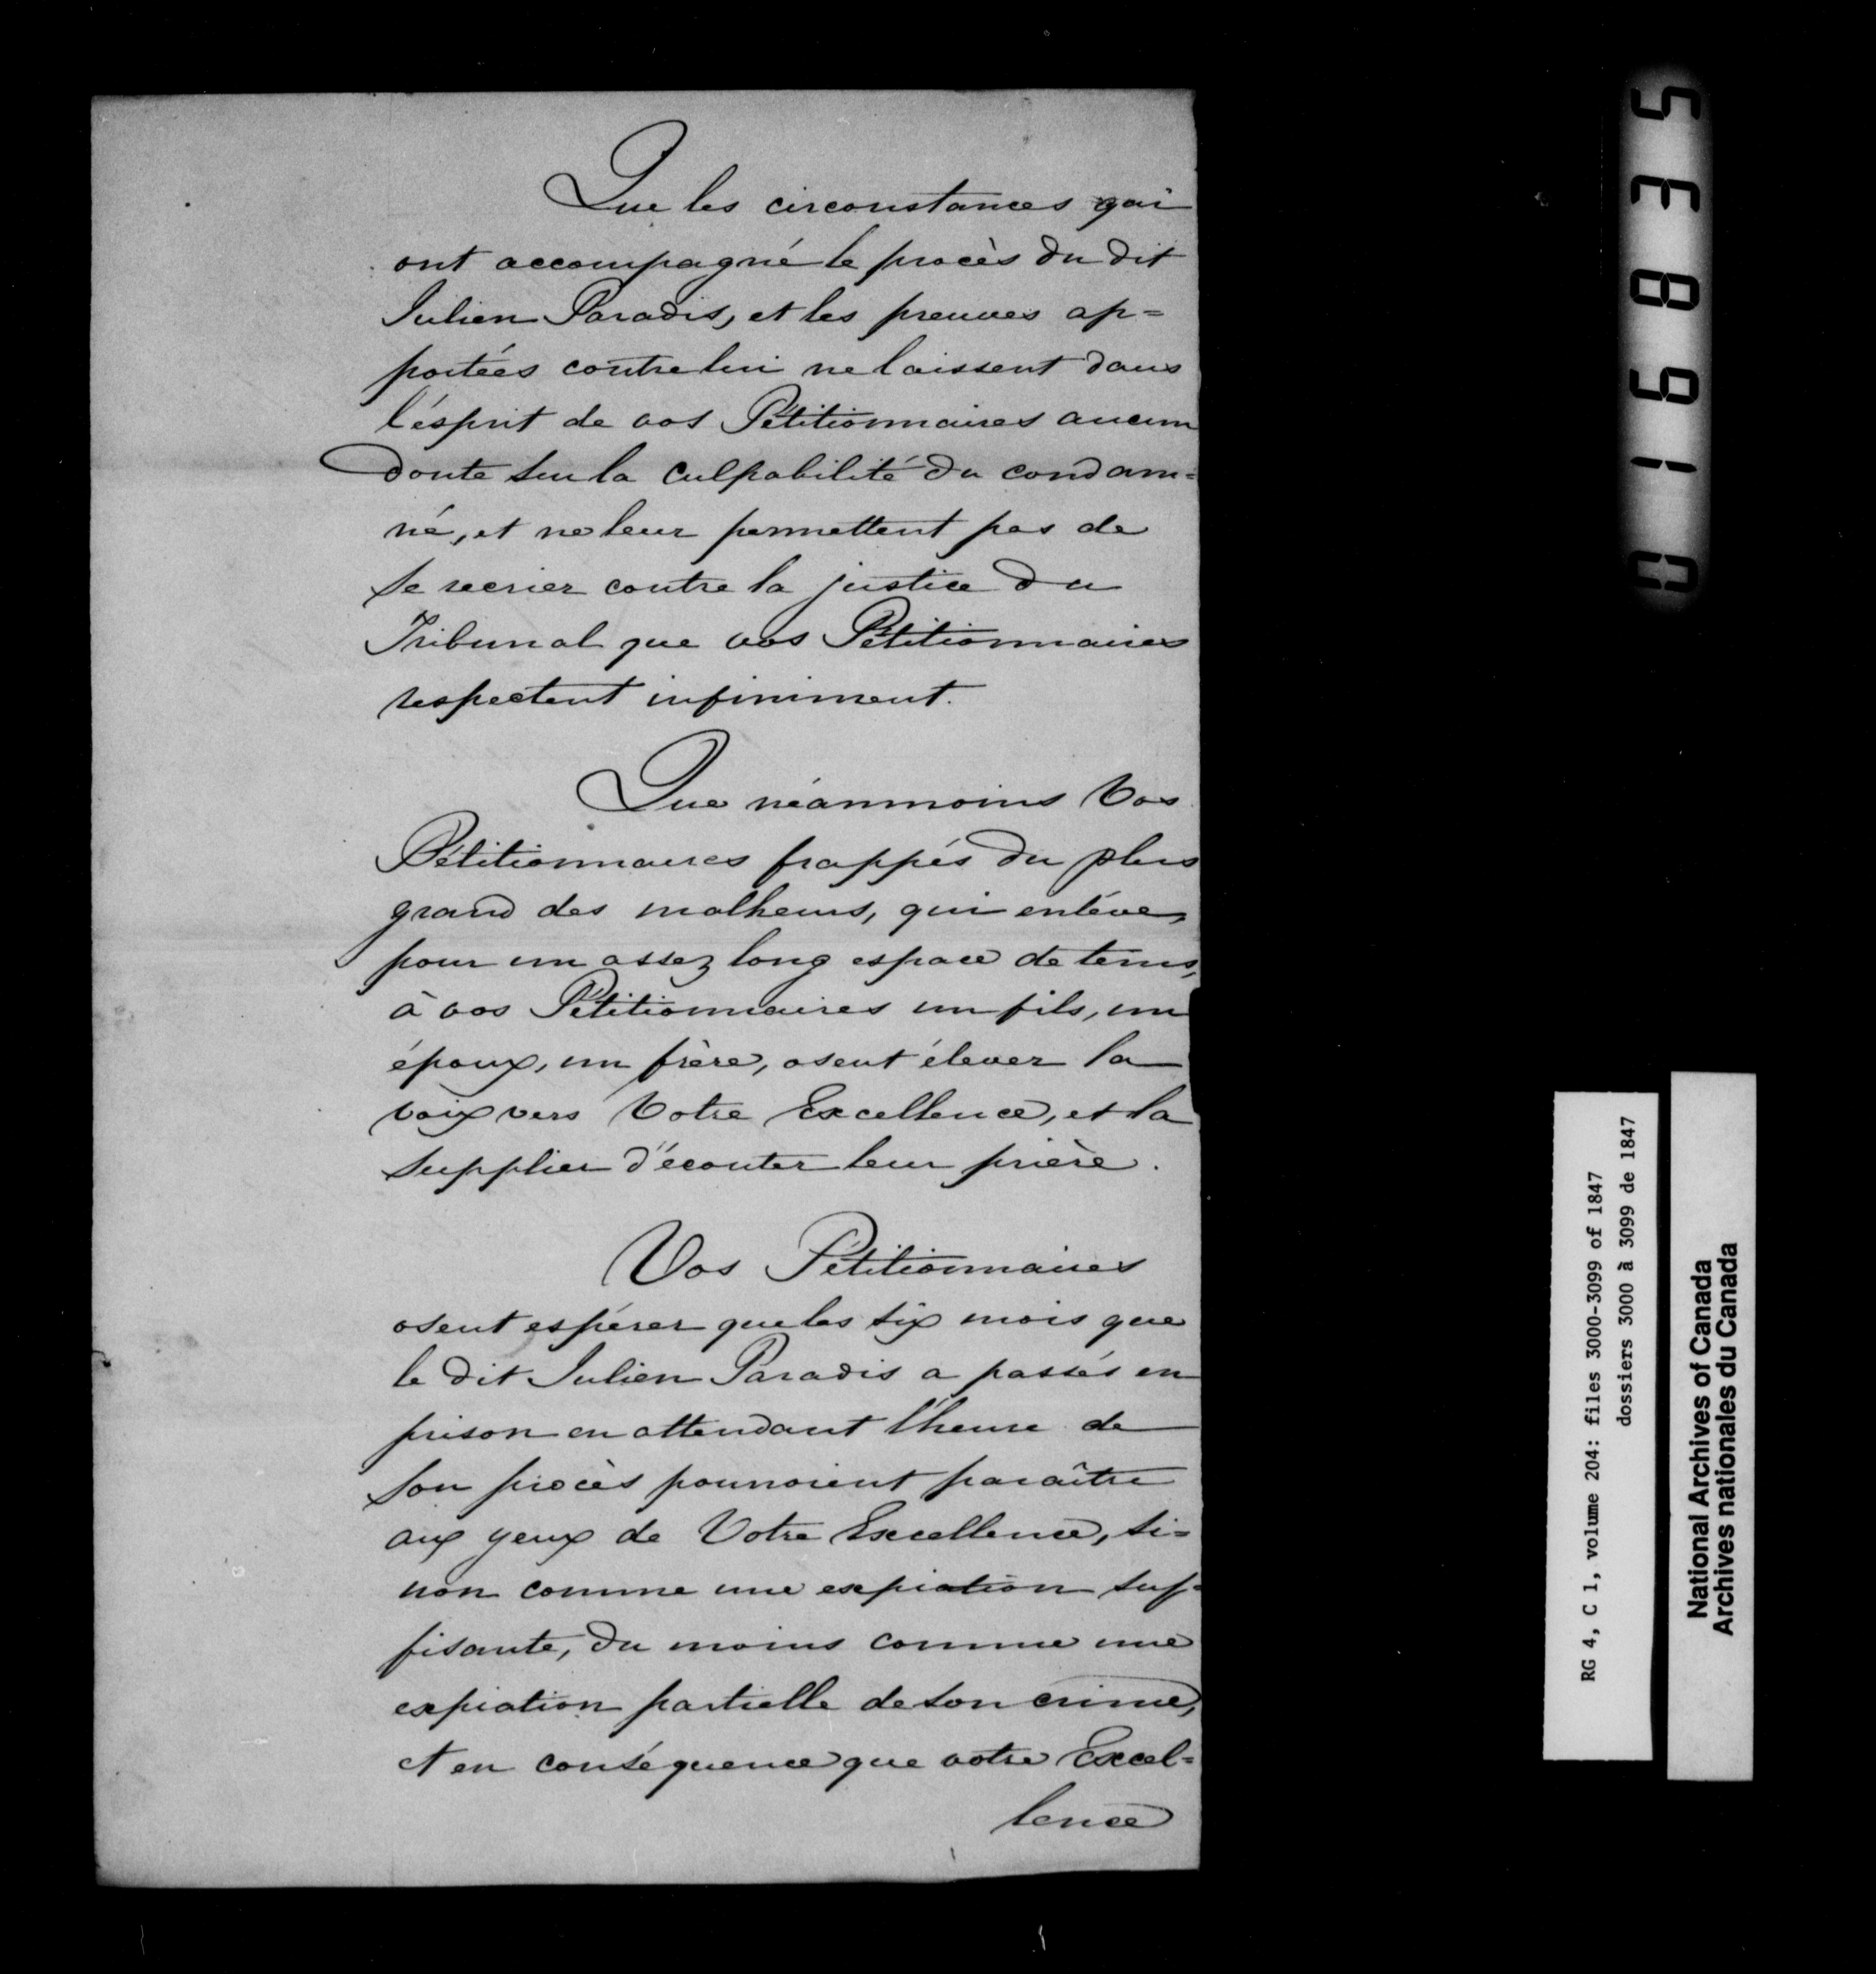 Que les circonstances qui
ont accompagné le procès du dit
Julien Paradis, et les preuves ap=
portées contre lui ne laissent dans
l'ésprit de vos Pétitionnaires aucun
doute sur la culpabilité du condam=
né, et ne leur permettent pas de
se recrier contre la justice du
Tribunal que vos Pétitionnaires
respectent infiniment.
Que néanmoins Vos
Pétitionnaires frappés du plus
grand des malheurs, qui enléve,
pour un assez long espace de tems,
à vos Pétitionnaires un fils, un
époux, un frère, osent élever la
voix vers Votre Excellence, et la
supplier d'écouter leur prière.
Vos Pétitionnaires
osent espérer que les six mois que
le dit Julien Paradis a passés en
prison en attendant l'heure de
son procès pourroient paraître
aux yeux de Votre Excellence, si=
non comme une expiation suf=
fisante, du moins comme une
expiation partielle de son crime,
et en conséquence que votre Excel=
lence
016835
RG 4, C 1, volume 204: files 3000-3099 of 1847
dossiers 3000 à 3099 de 1847
National Archives of Canada
Archives nationales du Canada